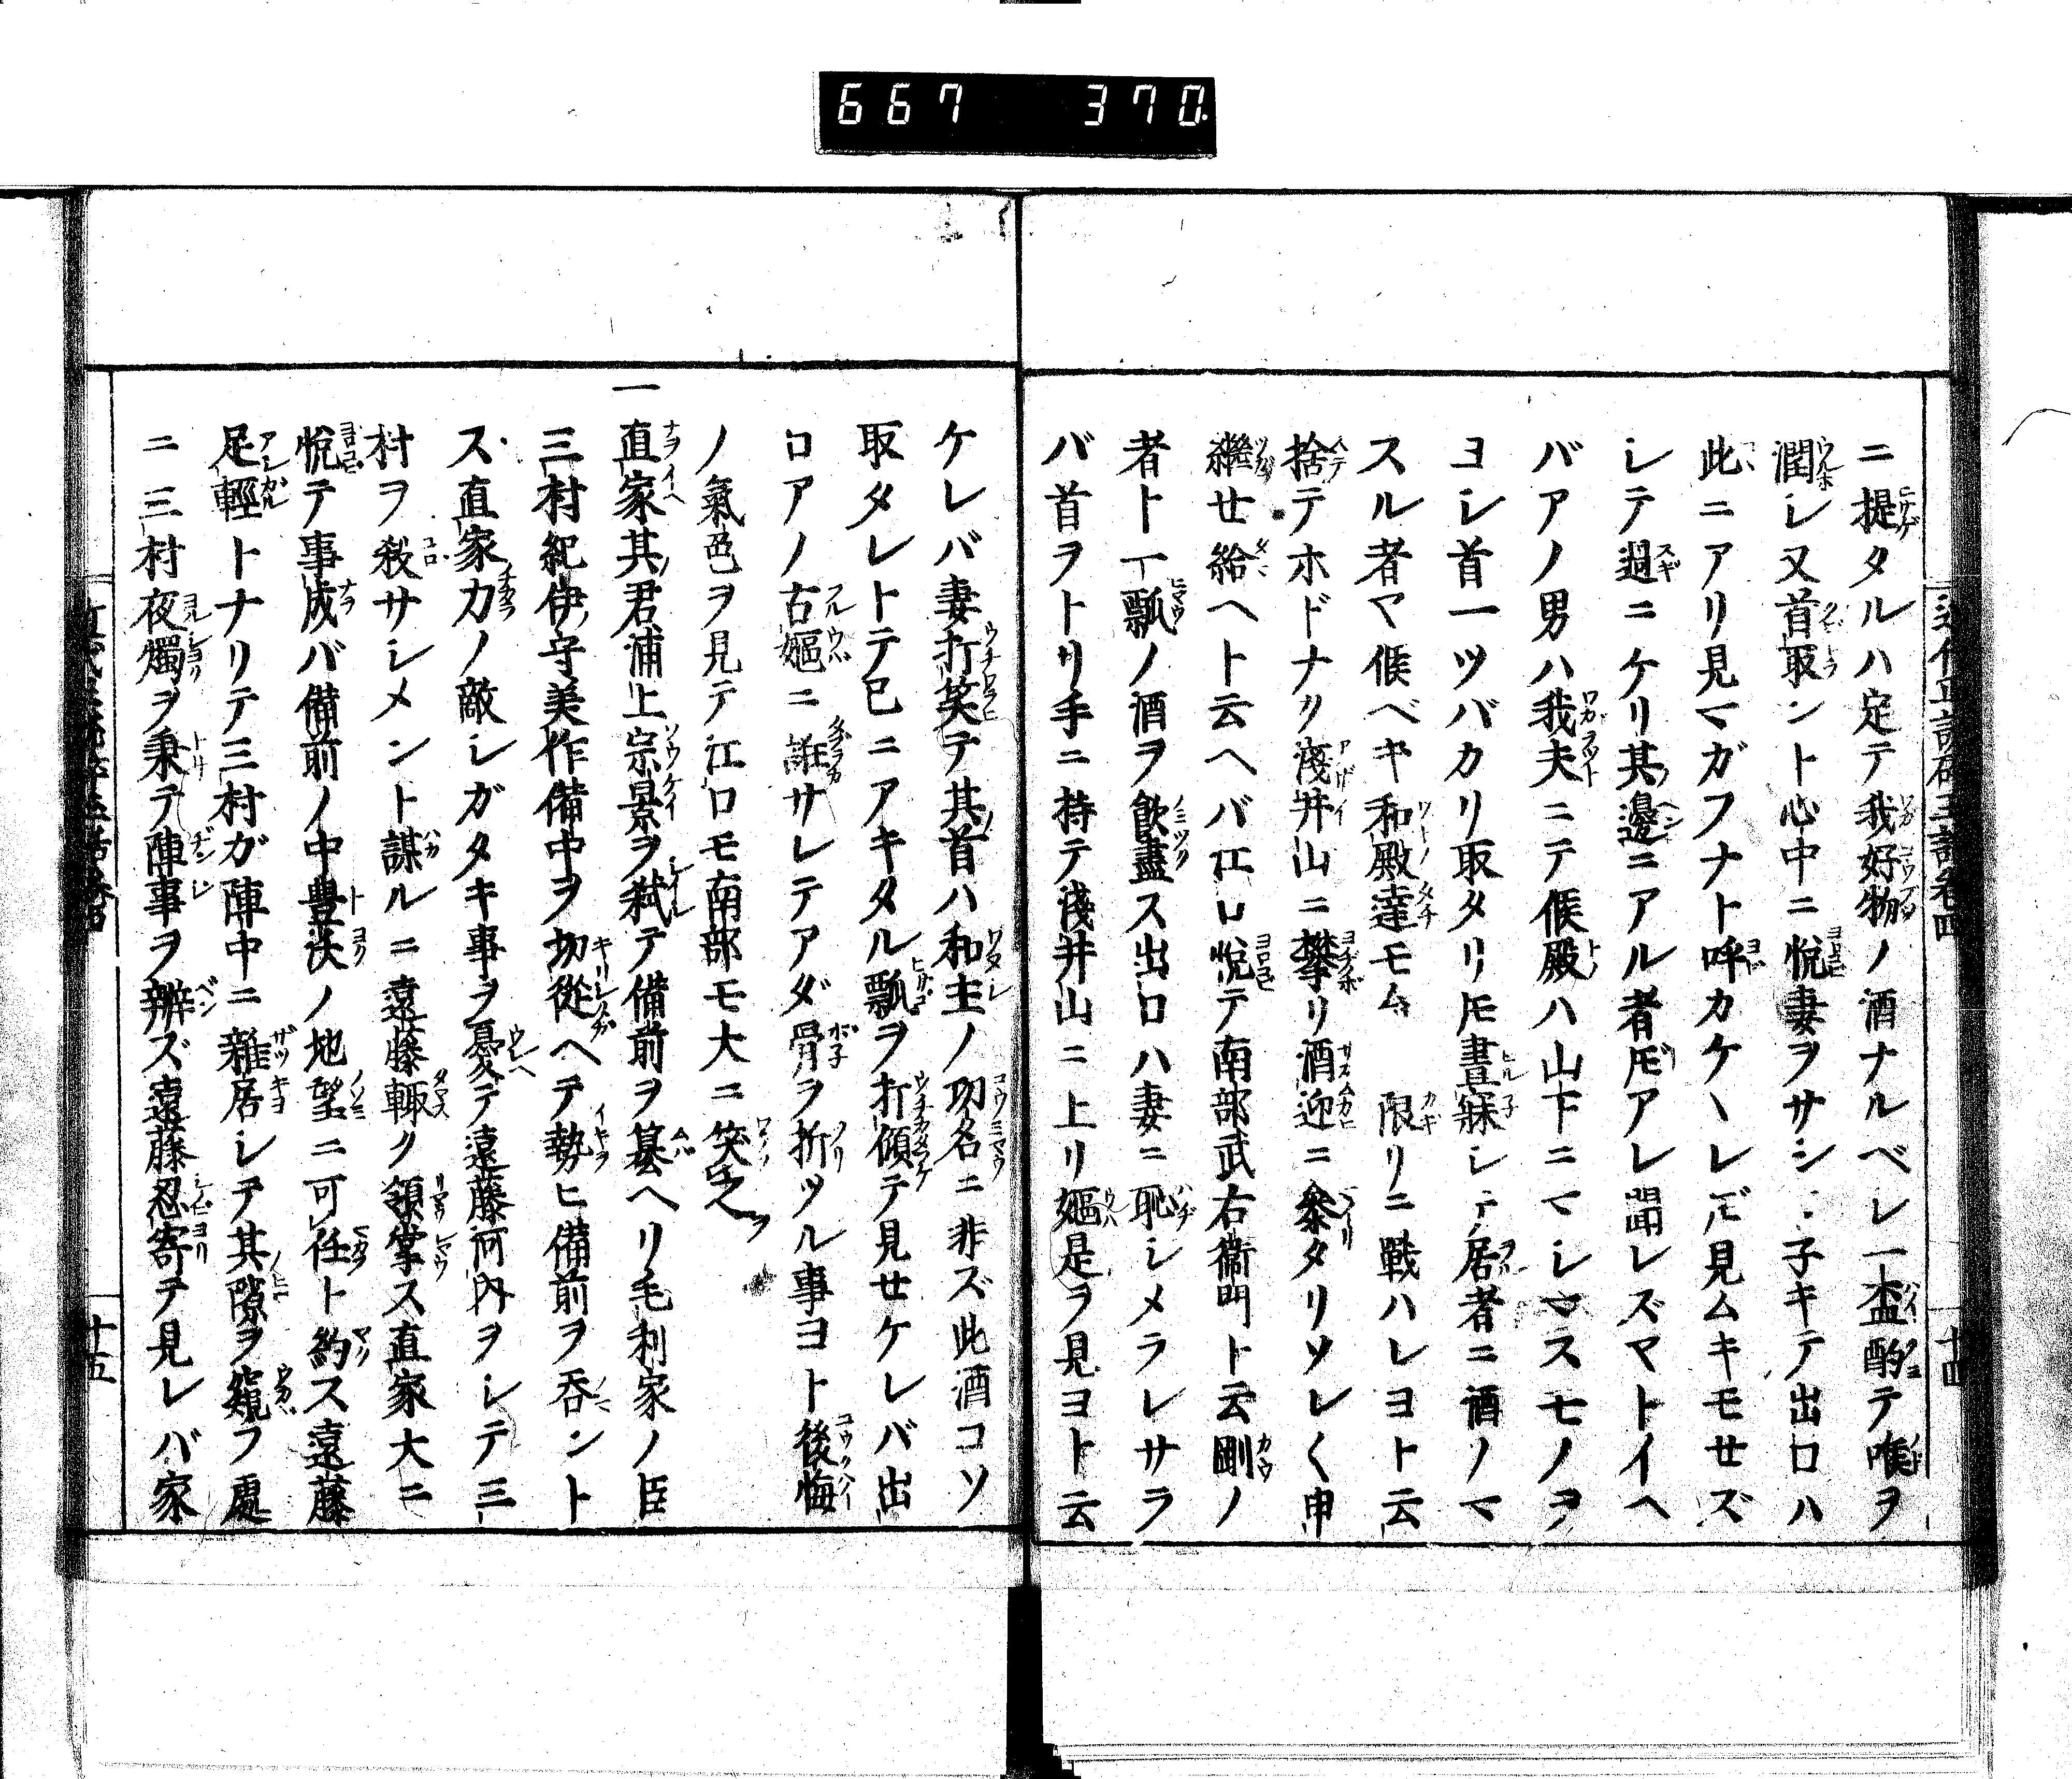 667 370
ニ提タルハ定テ我好物ノ酒ナルベレ一盃酌テ喉ヲ
潤レ又首取ント心中ニ悦妻ヲサシ子キテ出口ハ
此ニアリ見マガフナト呼カケヽレ𪜈見ムキモせズ
レテ過ニケリ其邊ニアル者𪜈アレ聞レズマトイヘ
バアノ男ハ我夫ニテ候殿ハ山下ニマレマスモノヲ
ヨレ首一ツバカリ取タリ𪜈晝寐レテ居者ニ酒ノマ
スル者マ候ベキ和殿達モ限リニ戰ハレヨト云
捨テホドナク淺井山ニ攀リ酒迎ニ參タリソレ〱申
繼せ給ヘト云ヘバ江口悦テ南部武右衞門ト云剛ノ
者ト一瓢ノ酒ヲ飮盡ス出口ハ妻ニ恥シメラレサラ
バ首ヲトリ手ニ持テ淺井山ニ上リ嫗是ヲ見ヨト云
十四
ケレバ妻打笑テ其首ハ和主ノ功名ニ非ズ此酒コソ
取タレトテ已ニアキタル瓢ヲ打傾テ見せケレバ出
口アノ古嫗ニ誑サレテアダ骨ヲ折ツル事ヨト後悔
ノ氣色ヲ見テ江口モ南部モ大ニ笑之
一直家其君浦上宗景ヲ弑テ備前ヲ簒ヘリ毛利家ノ臣
三村紀伊守美作備中ヲ切從ヘテ勢ヒ備前ヲ呑ント
ス直家力ノ敵レガタキ事ヲ憂テ遠藤河内ヲレテ三
村ヲ殺サレメント謀ルニ遠藤輙ク領掌ス直家大ニ
悦テ事成バ備前ノ中豊沃ノ地望ニ可任ト約ス遠藤
足輕トナリテ三村ガ陣中ニ雜居レテ其隙ヲ窺フ處
ニ三村夜燭ヲ秉テ陣事ヲ辨ズ遠藤忍寄テ見レバ家
十五